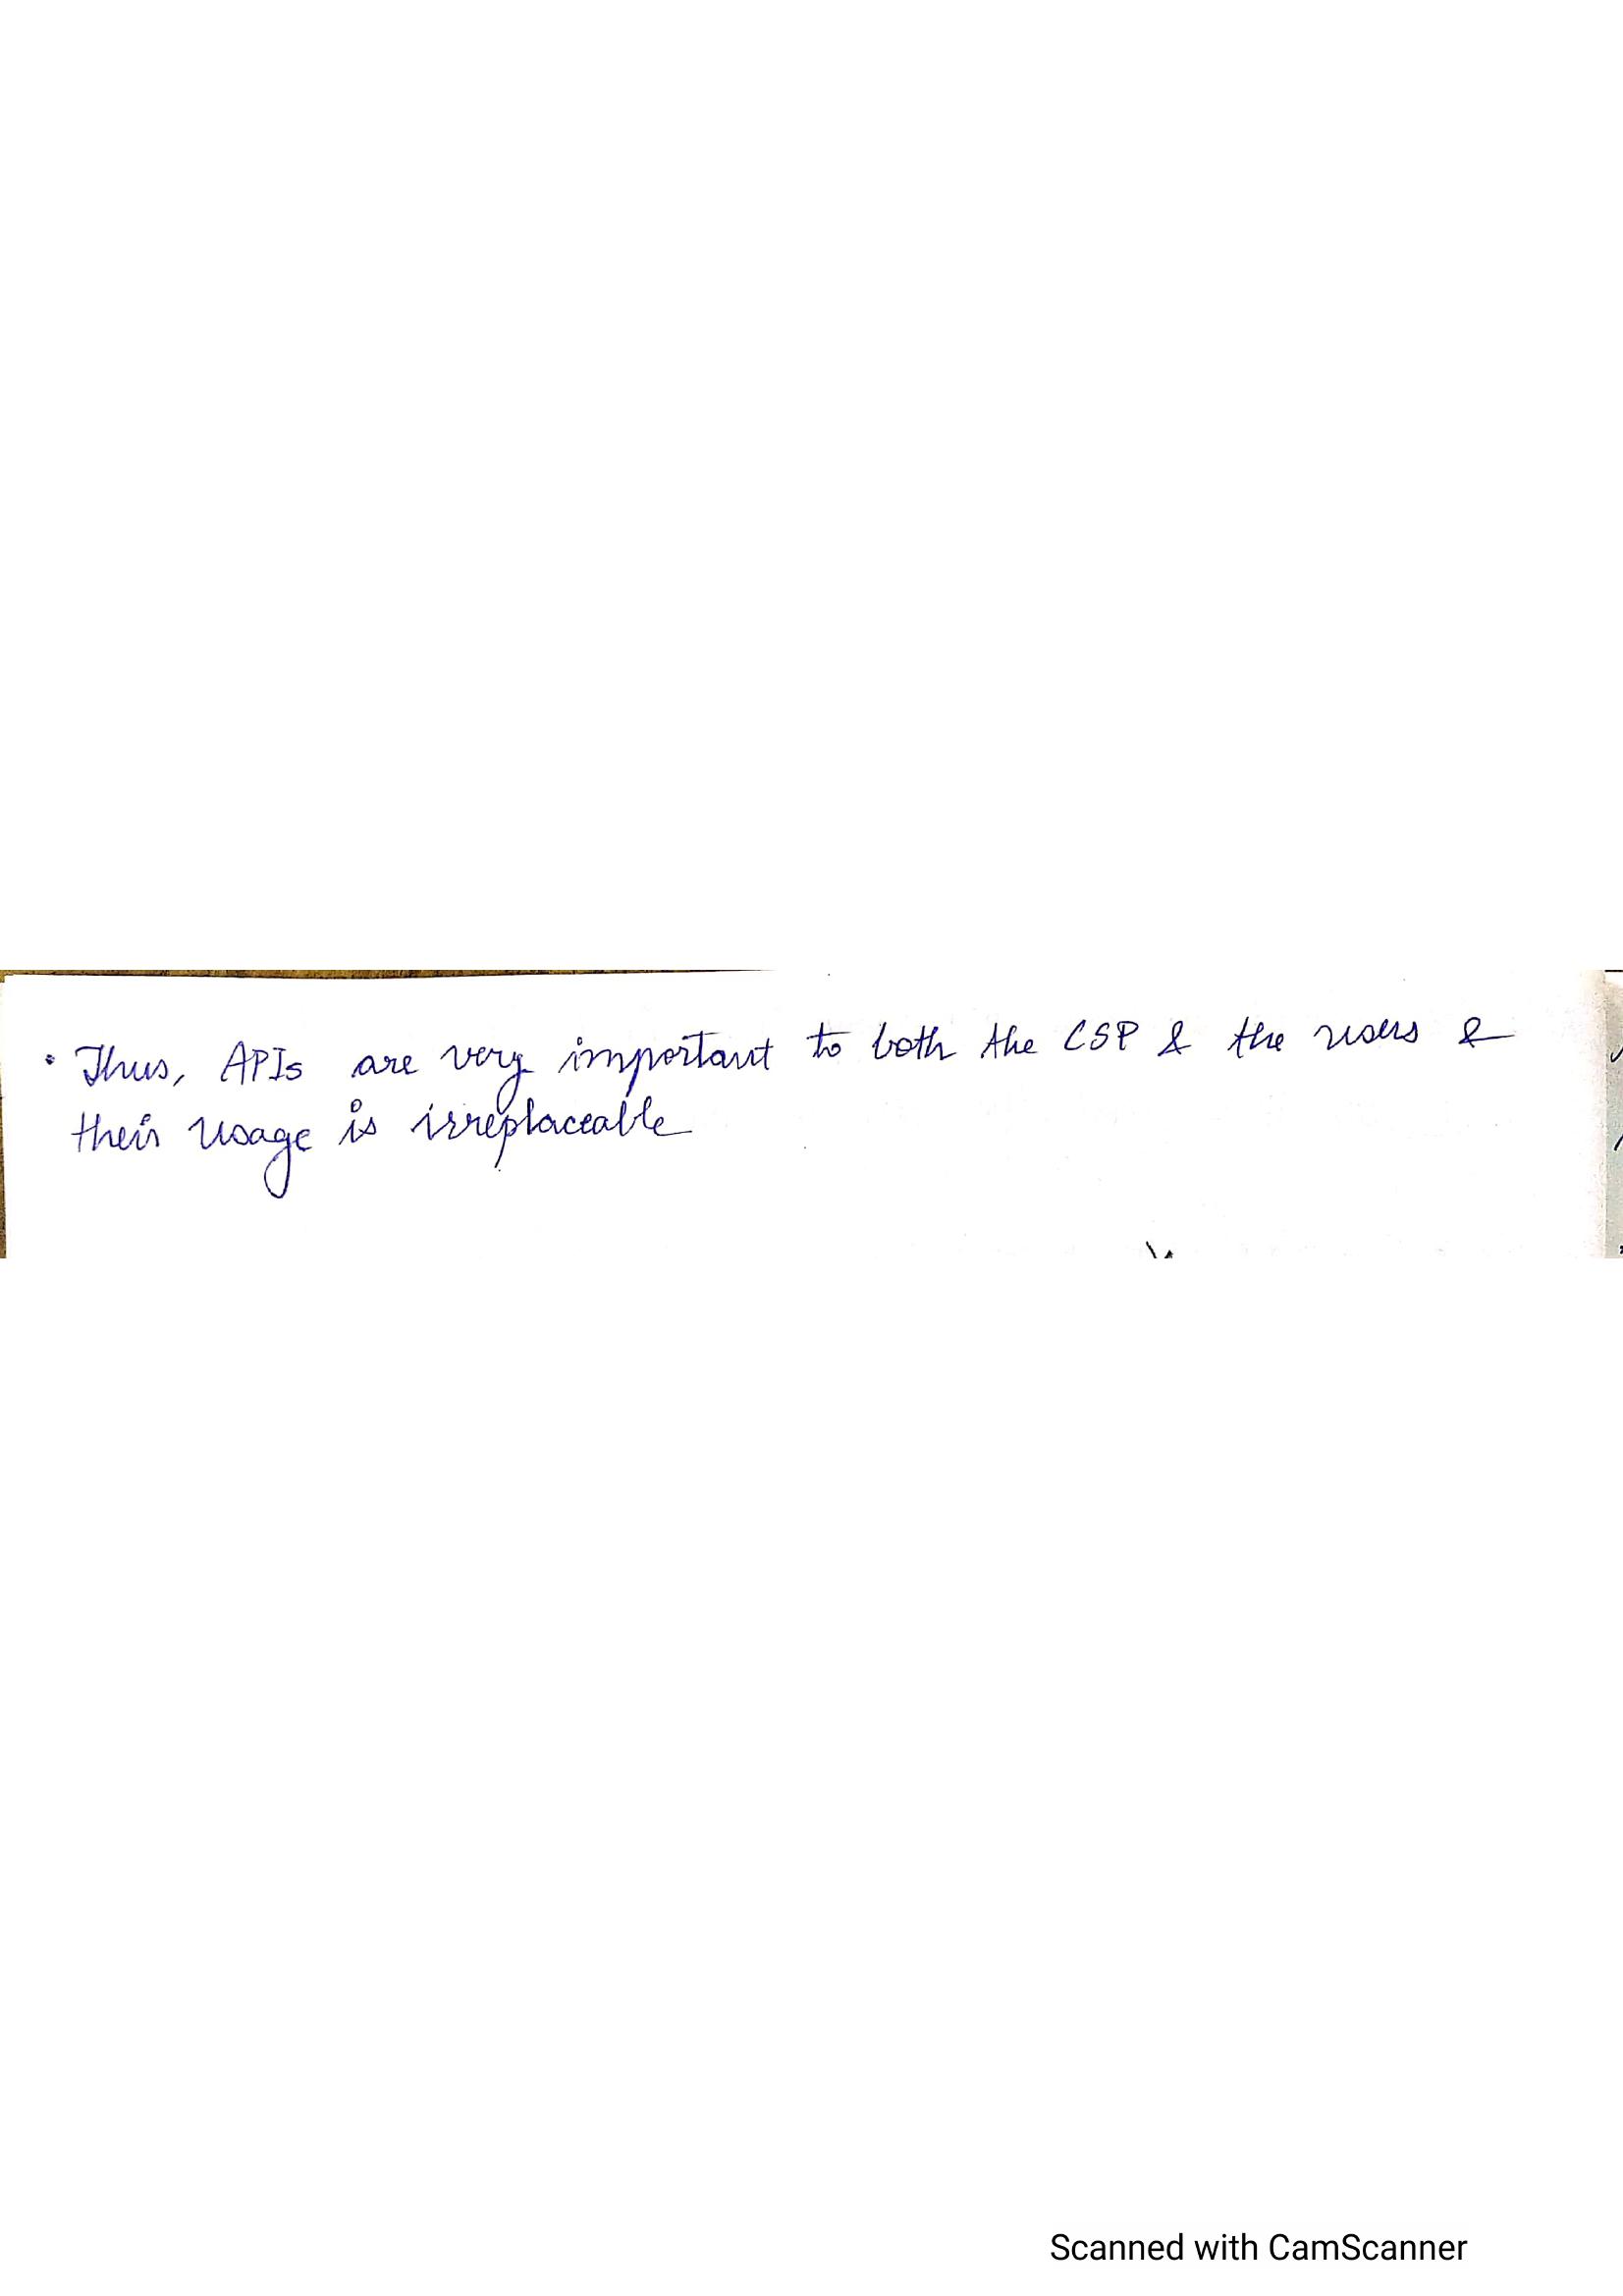 • Thus, APIs are very important to both the CSP & the users &
their usage is irreplaceable
Scanned with CamScanner